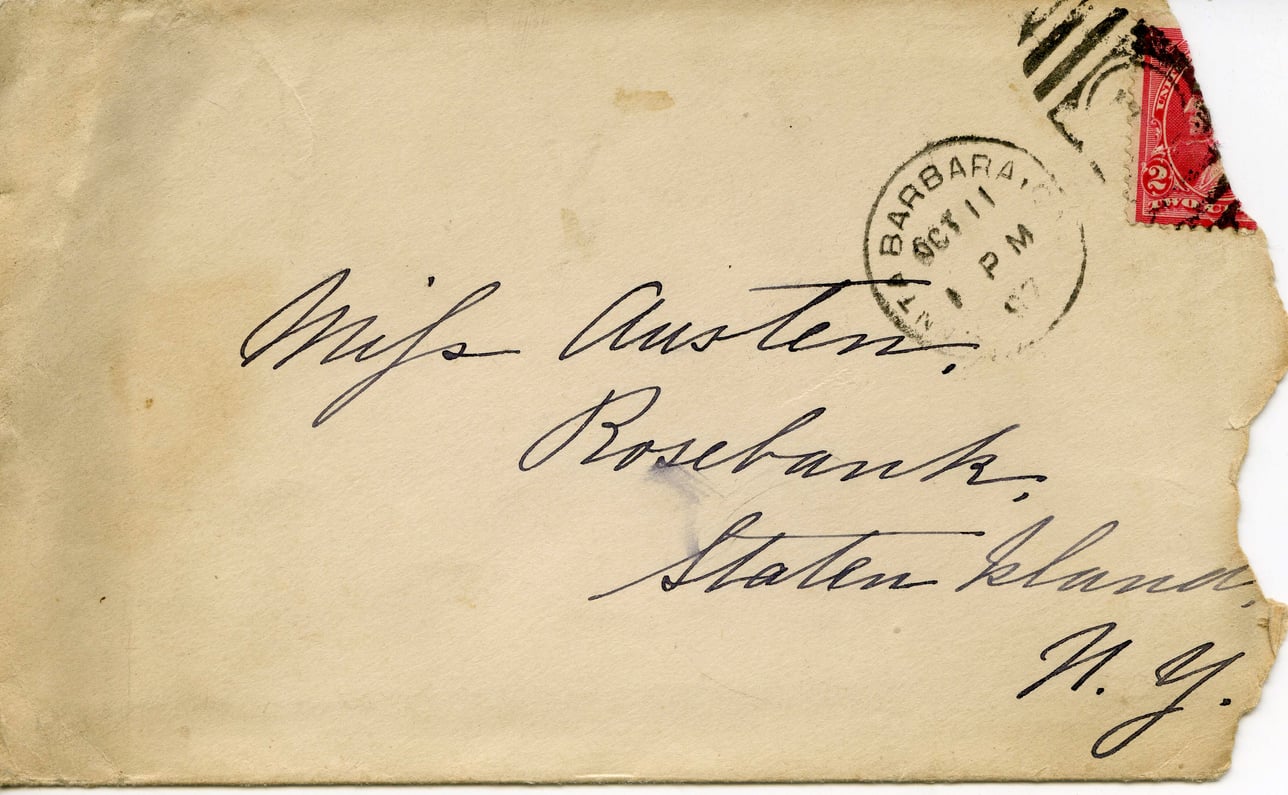 UNIT
2
TWO
BARBARA,
OCT 11
1 PM
97
Miss Austen,
Rosebank,
Staten Island,
N. Y.